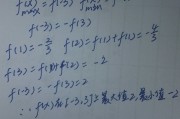 f(x)max = f(-3) f(x)min = f(3)
f(-3) = -f(3)
f(1) = -2/3 f(2) = f(1)+f(1) = -4/3
f(3) = f(1)+f(2) = -2
f(-3) = -f(3) = 2
∴ f(x)在[-3,3]上最大值2,最小值-2